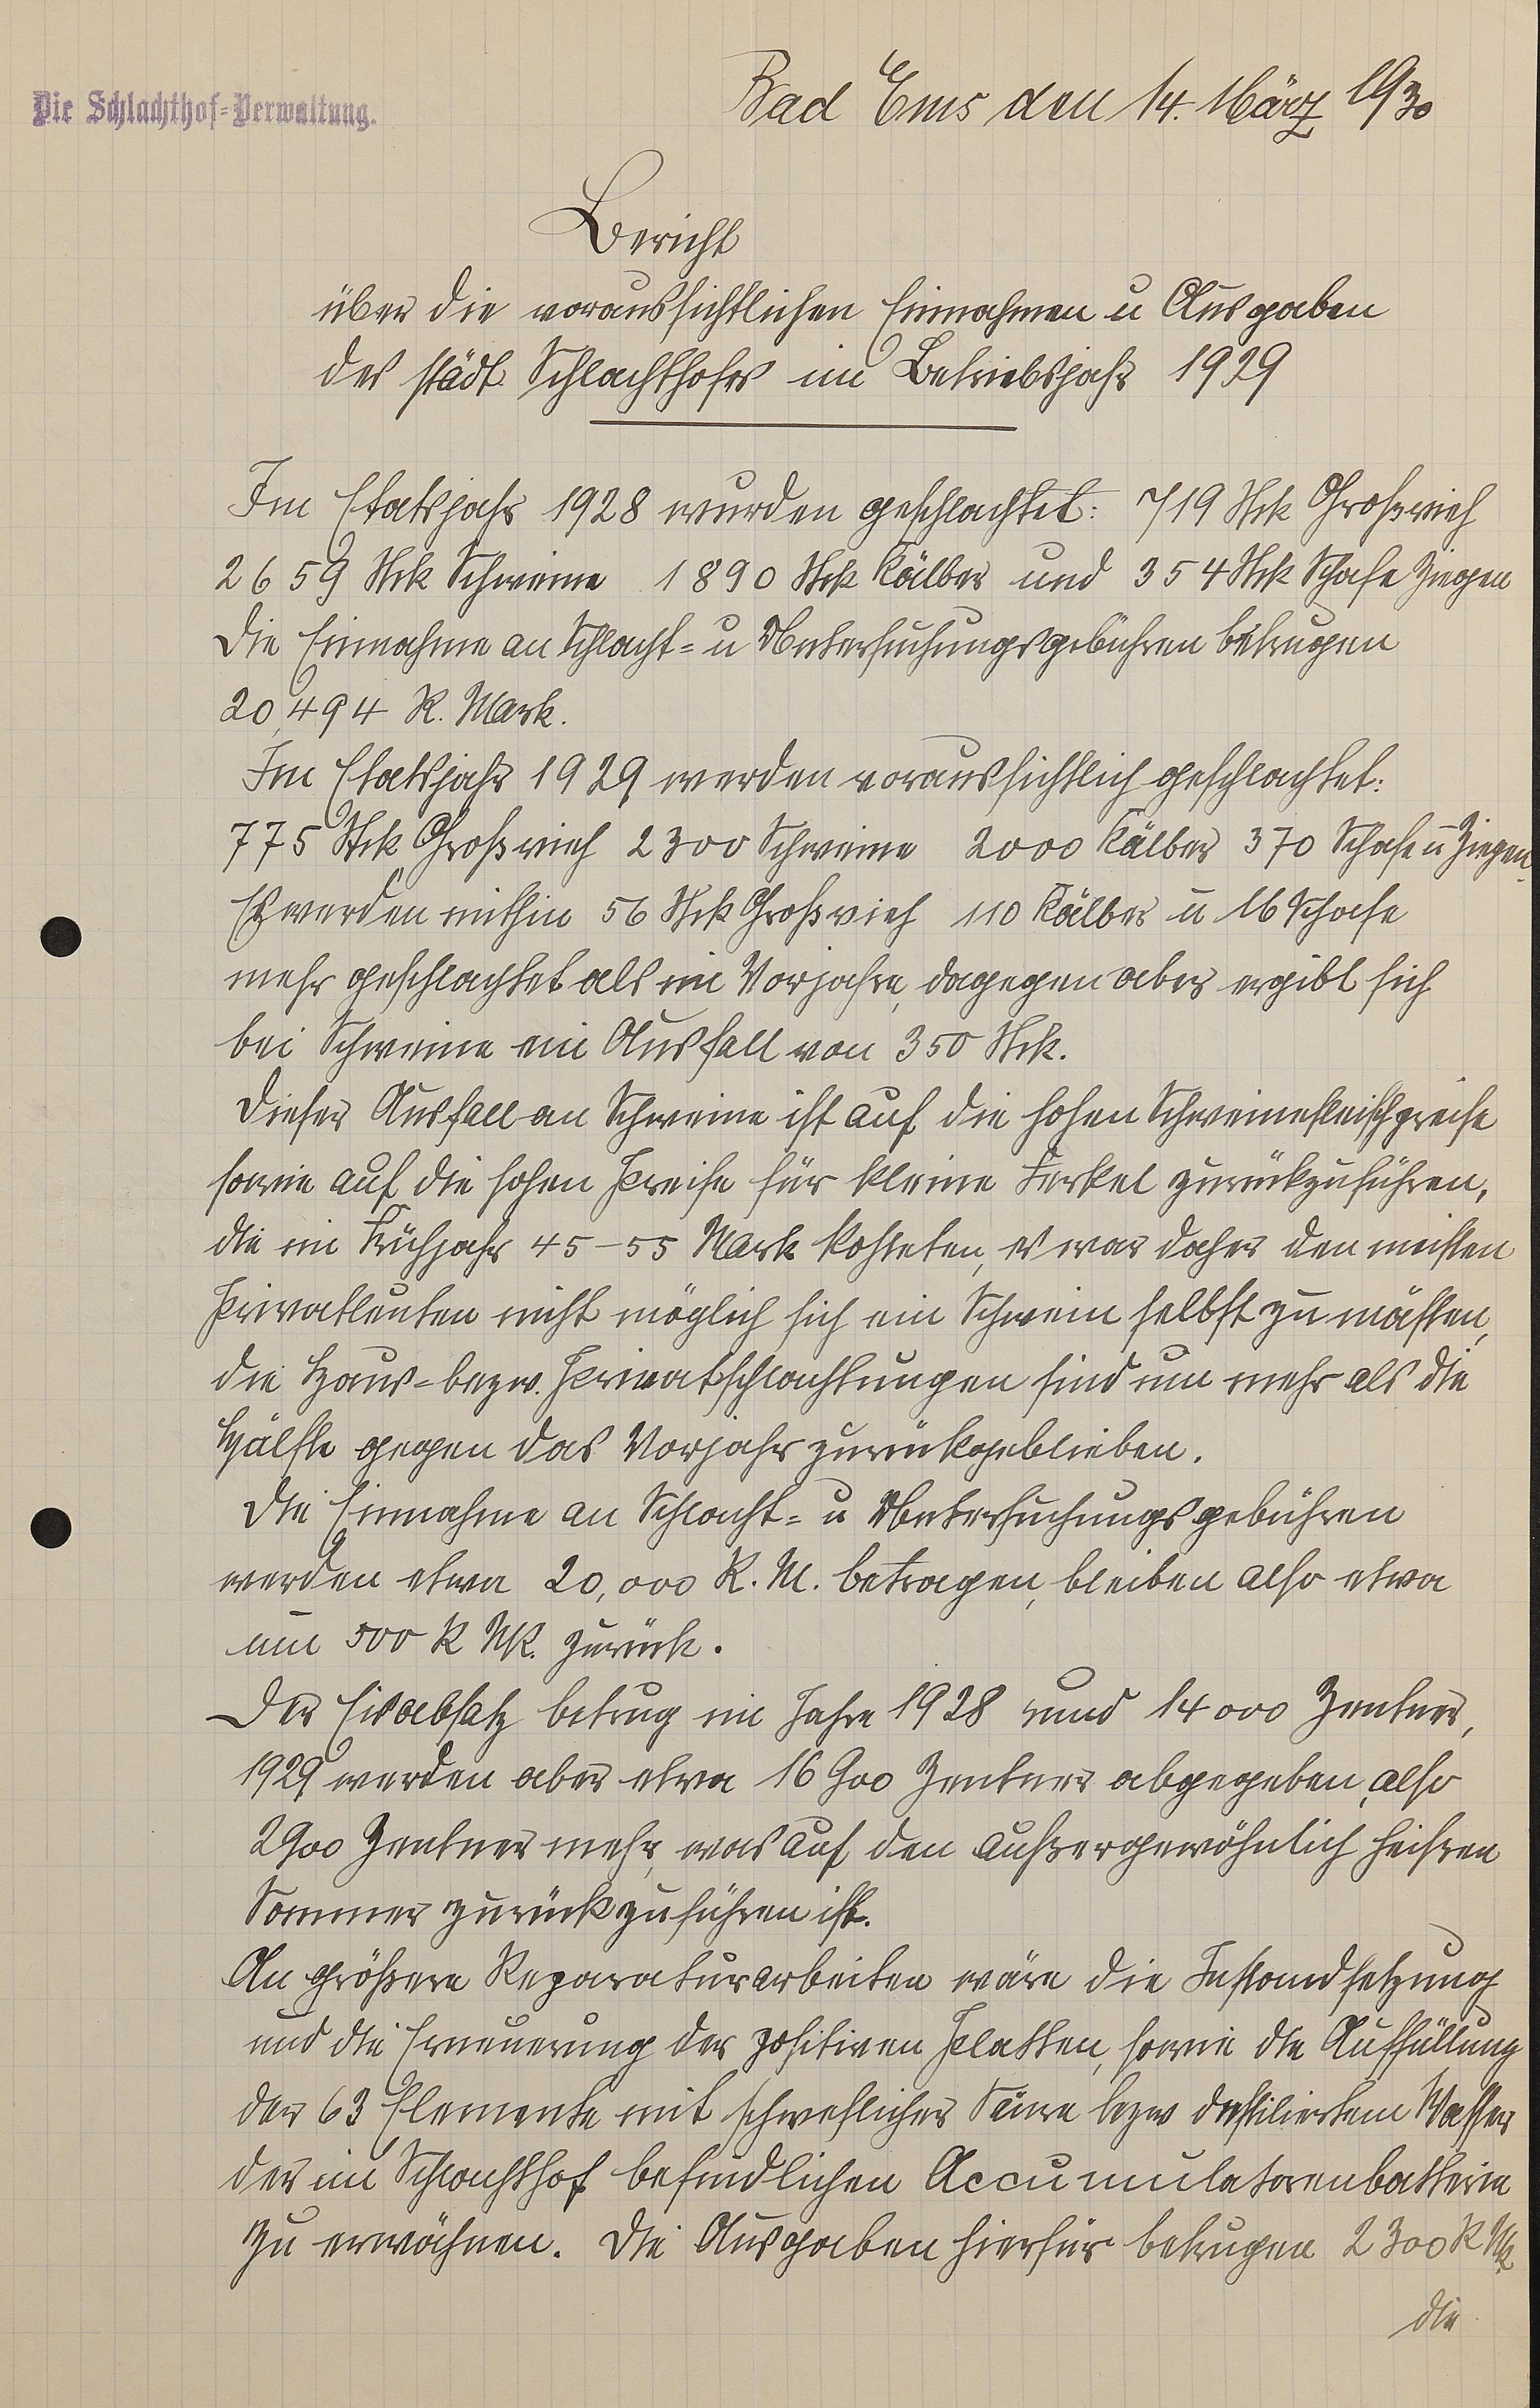 Die Schlachthof-Verwaltung.
Bad Ems den 14. März 1930
Bericht
über die voraussichtlichen Einnahmen u Ausgaben
des städt. Schlachthofes im Betriebsjahr 1929
Im Etatsjahr 1928 wurden geschlachtet: 719 Stck Großvieh
2659 Stck Schweine 1890 Stck Kälber und 354 Stck Schafe Ziegen
Die Einnahme an Schlacht- u Untersuchungsgebühren betrugen
20,494 R. Mark.
Im Etatsjahr 1929 werden voraussichtlich geschlachtet:
775 Stck Großvieh 2300 Schweine 2000 Kälber 370 Schafe u Ziegen.
Es werden mithin 56 Stck Großvieh 110 Kälber u 16 Schafe
mehr geschlachtet als im Vorjahre, dagegen aber ergibt sich
bei Schweine ein Ausfall von 350 Stck.
Dieser Ausfall an Schweine ist auf die hohen Schweinefleischpreise
sowie auf die hohen Preise für kleine Ferkel zurückzuführen,
die im Frühjahr 45-55 Mark kosteten, es war daher den meisten
Privatleuten nicht möglich sich ein Schwein selbst zu mästen,
die Haus- bezw. Privatschlachtungen sind um mehr als die
Hälfte gegen das Vorjahr zurückgeblieben.
Die Einnahme an Schlacht- u Untersuchungsgebühren
werden etwa 20,000 R. M. betragen, bleiben also etwa
um 500 R Mk. zurück.
Der Eisabsatz betrug im Jahre 1928 rund 14000 Zentner,
1929 werden aber etwa 16900 Zentner abgegeben, also
2900 Zentner mehr, was auf den außergewöhnlich heißen
Sommer zurückzuführen ist.
An größere Reparaturarbeiten wäre die Instandsetzung
und die Erneuerung der positiven Platten, sowie die Auffüllung
der 63 Elemente mit schweflicher Säure bezw destiliertem Wasser
der im Schlachthof befindlichen Accumulatorenbatterie
zu erwähnen. Die Ausgaben hierfür betrugen 2300 R Mk
die